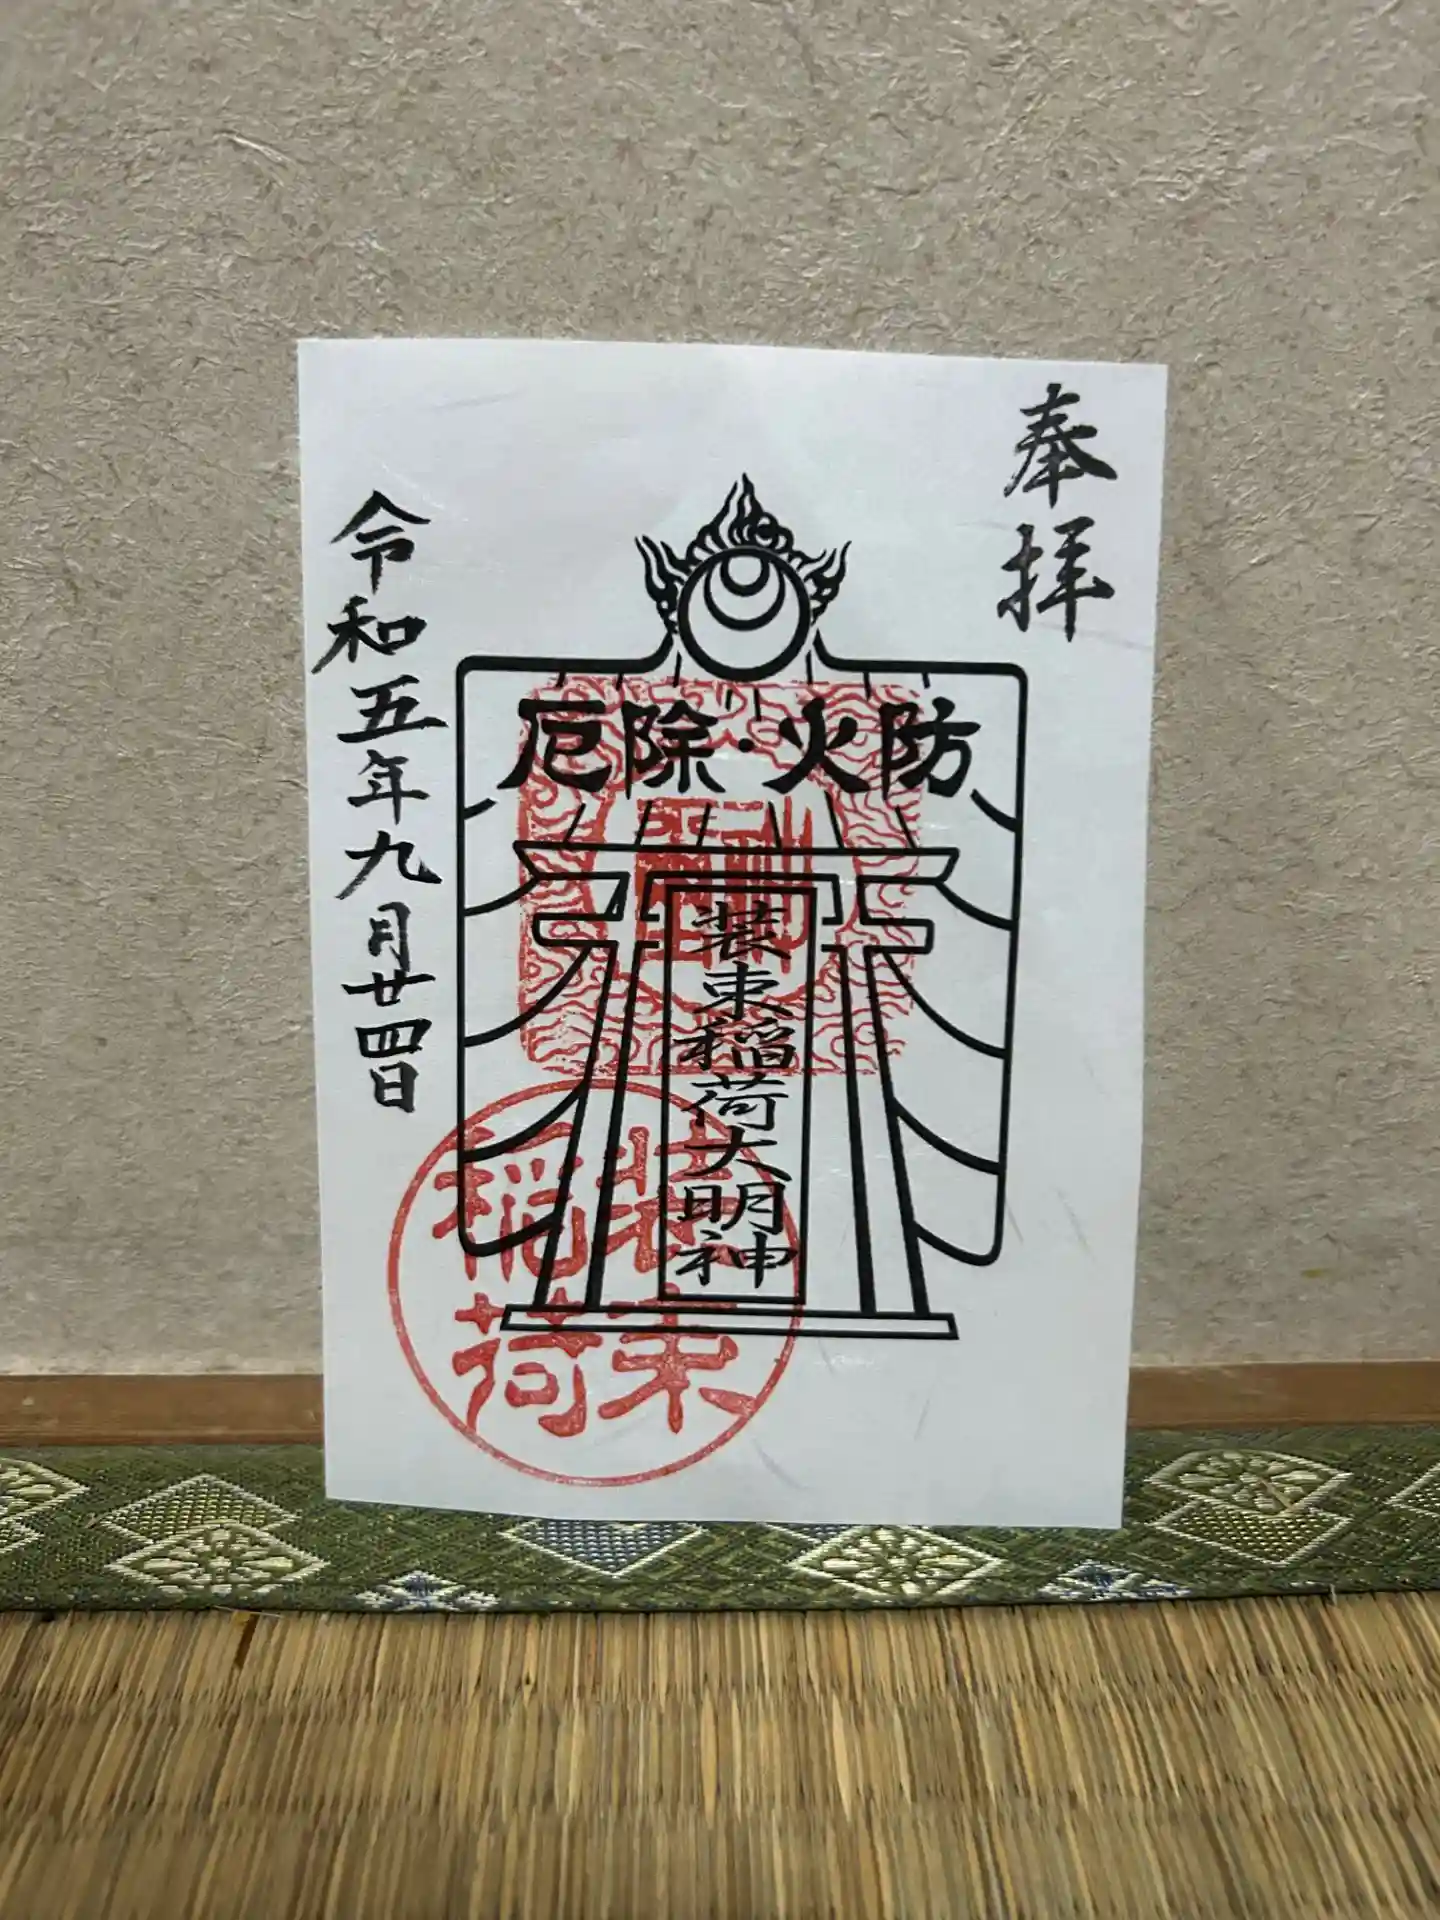 奉拝
厄除・火防
装束稲荷大明神
装束
稲荷
令和五年九月廿四日